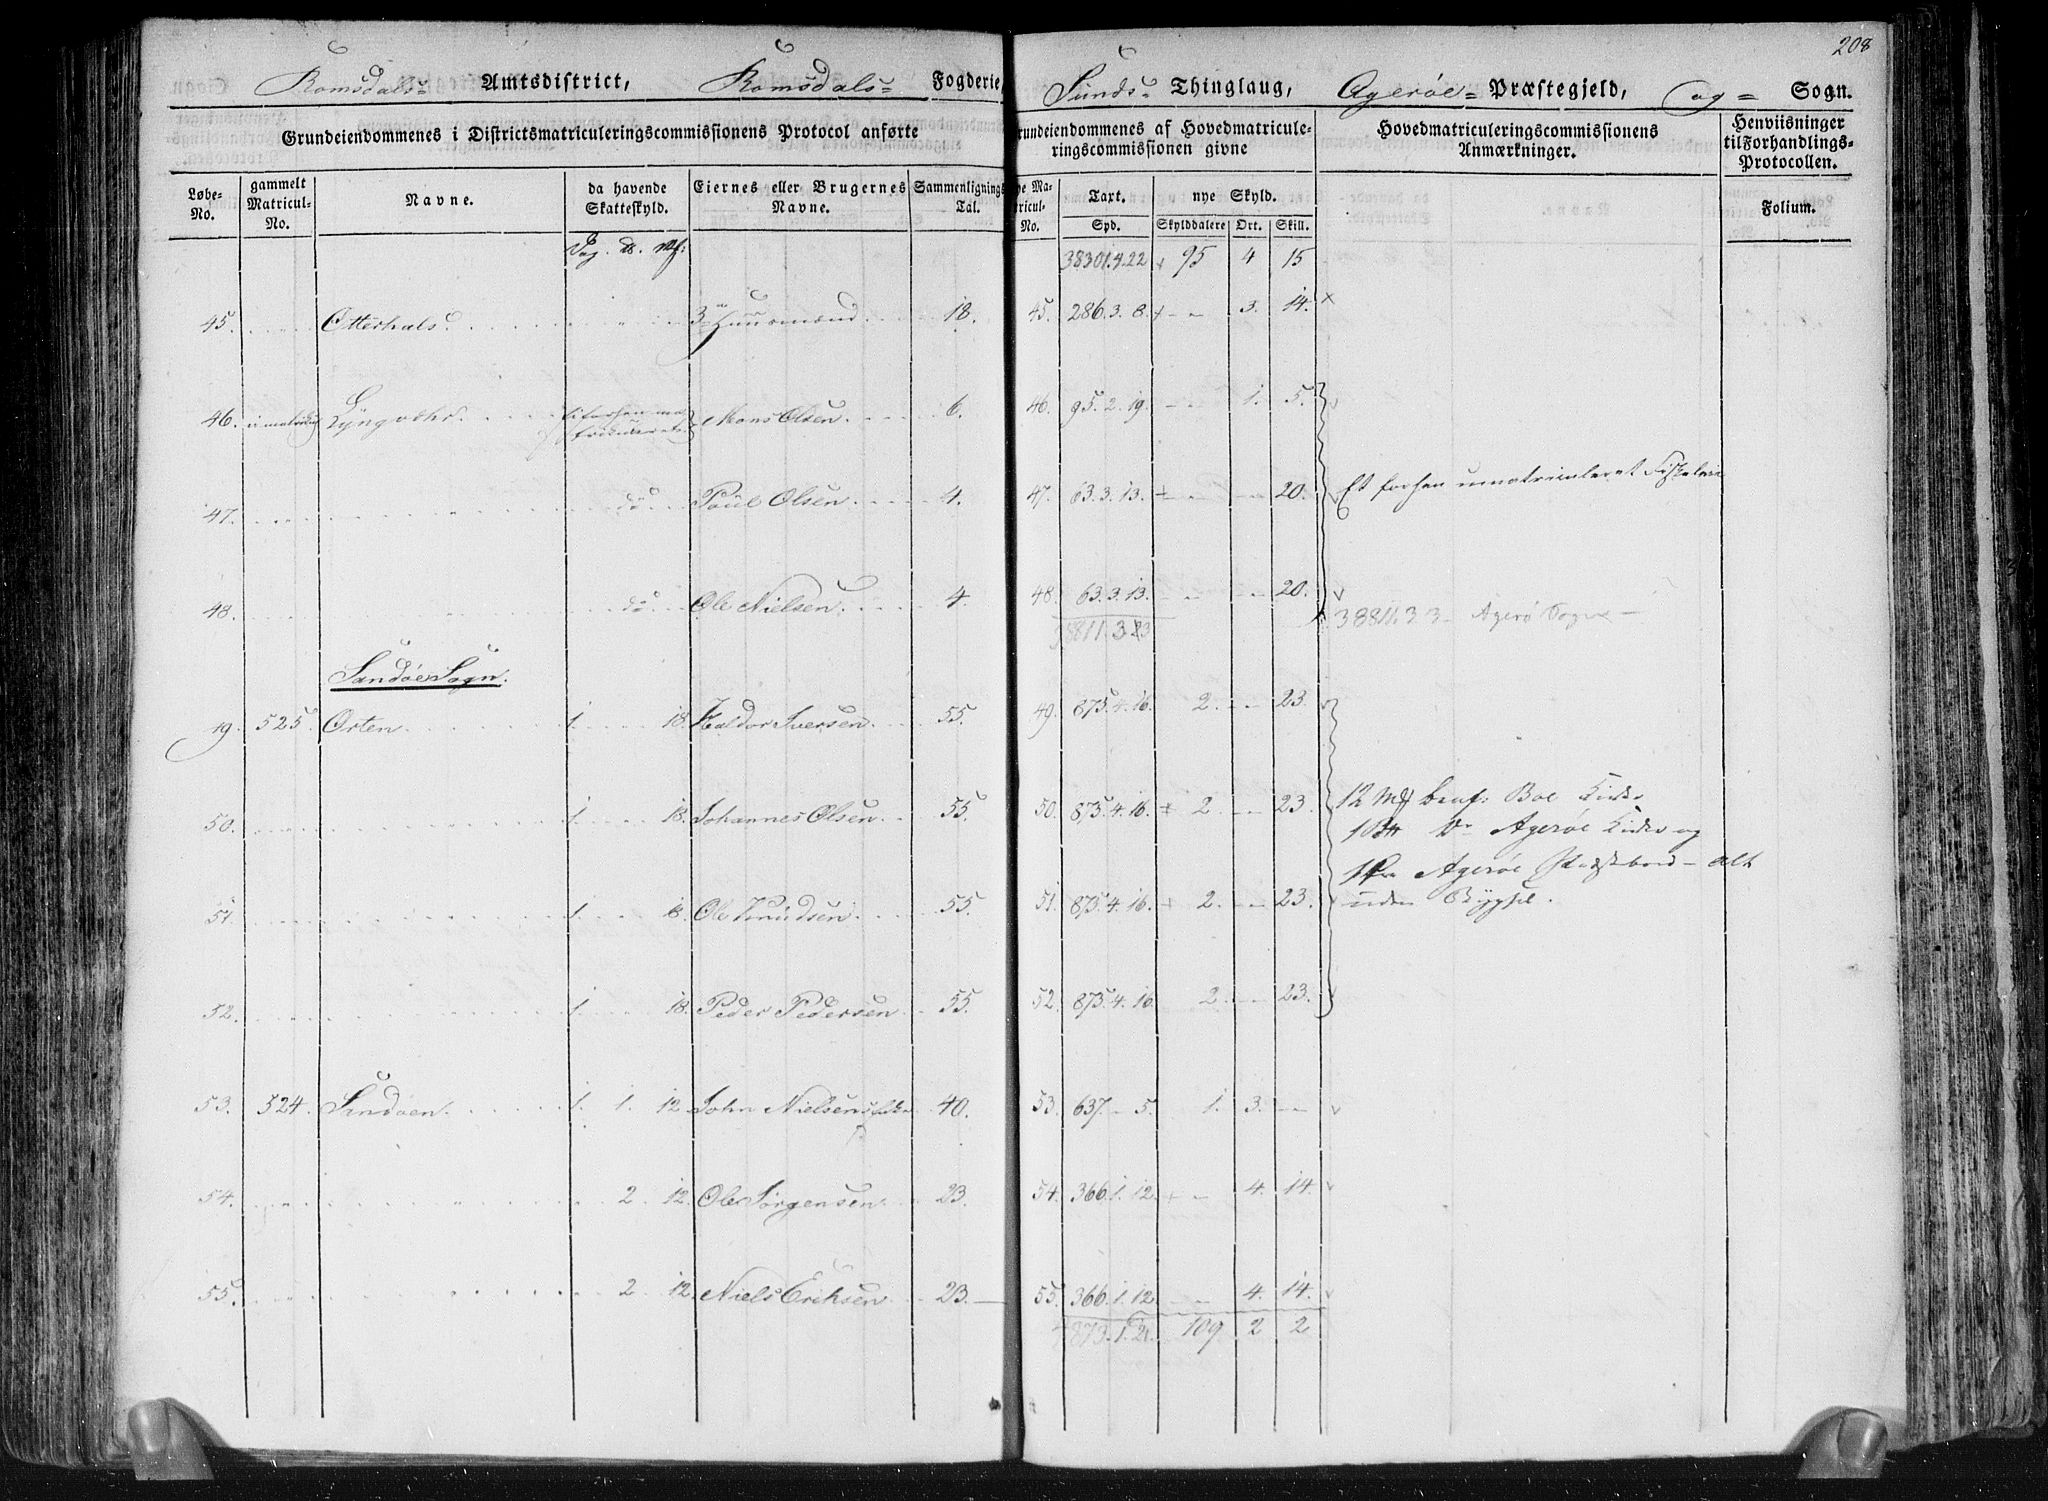 208
Romsdals= Amtsdistrict, Romsdals= Fogderie, Sunds= Thinglaug, Agerøe= Præstegjeld, og= Sogn.
Grundeiendommenes i Districtsmatriculeringscommissionens Protocol anførte
Grundeiendommenes af Hovedmatricule=
ringscommissionen givne
Hovedmatriculeringscommissionens
Anmærkninger.
Henviisninger
til Forhandlings=
Protocollen.
Løbe=
No.
gammelt
Matricul=
No.
Navne.
da havende
Skatteskyld.
Eiernes eller Brugernes
Navne.
Sammenlignings
Tal.
nye Ma=
tricul=
No.
Taxt.
Spd.
nye Skyld.
Skylddalere Ort. Skill.
Folium.
38301.4.22 95 4 15
45. Otterhals 3 Huusmænd 18. 45. 286.3.8. - 3. 14.
46. Lyngvær Mons Olsen 6. 46. 95.2.19. - 1. 5.
47. do Poul Olsen 4. 47. 63.3.13. - - 20. Et forhen umatriculeret
48. do Ole Nielsen 4. 48. 63.3.13. - - 20.
Agerø Sogn
Sandøe Sogn.
49. 525 Orten 1 18. Haldor Iversen 55. 49. 875.4.16. 2. - 23.
50. 1 18. Johannes Olsen 55. 50. 875.4.16. 2. - 23. 12 Boe Kirke
Agerøe Kirke og
51. 1 18. Ole Knudsen 55. 51. 875.4.16. 2. - 23. Agerøe Præstebord - alt
uden Bygsel.
52. 1 18. Peder Pedersen 55. 52. 875.4.16 2. - 23.
53. 524. Sandøen 1. 1. 12. John Nielsens 40. 53. 637. - 5. 1. 3. -
54. 2. 12. Ole Jørgensen 23. 54. 366.1.12. - 4. 14.
55. 2 12. Niels Eriksen 23. 55. 366.1.12 - 4. 14.
109 2 2